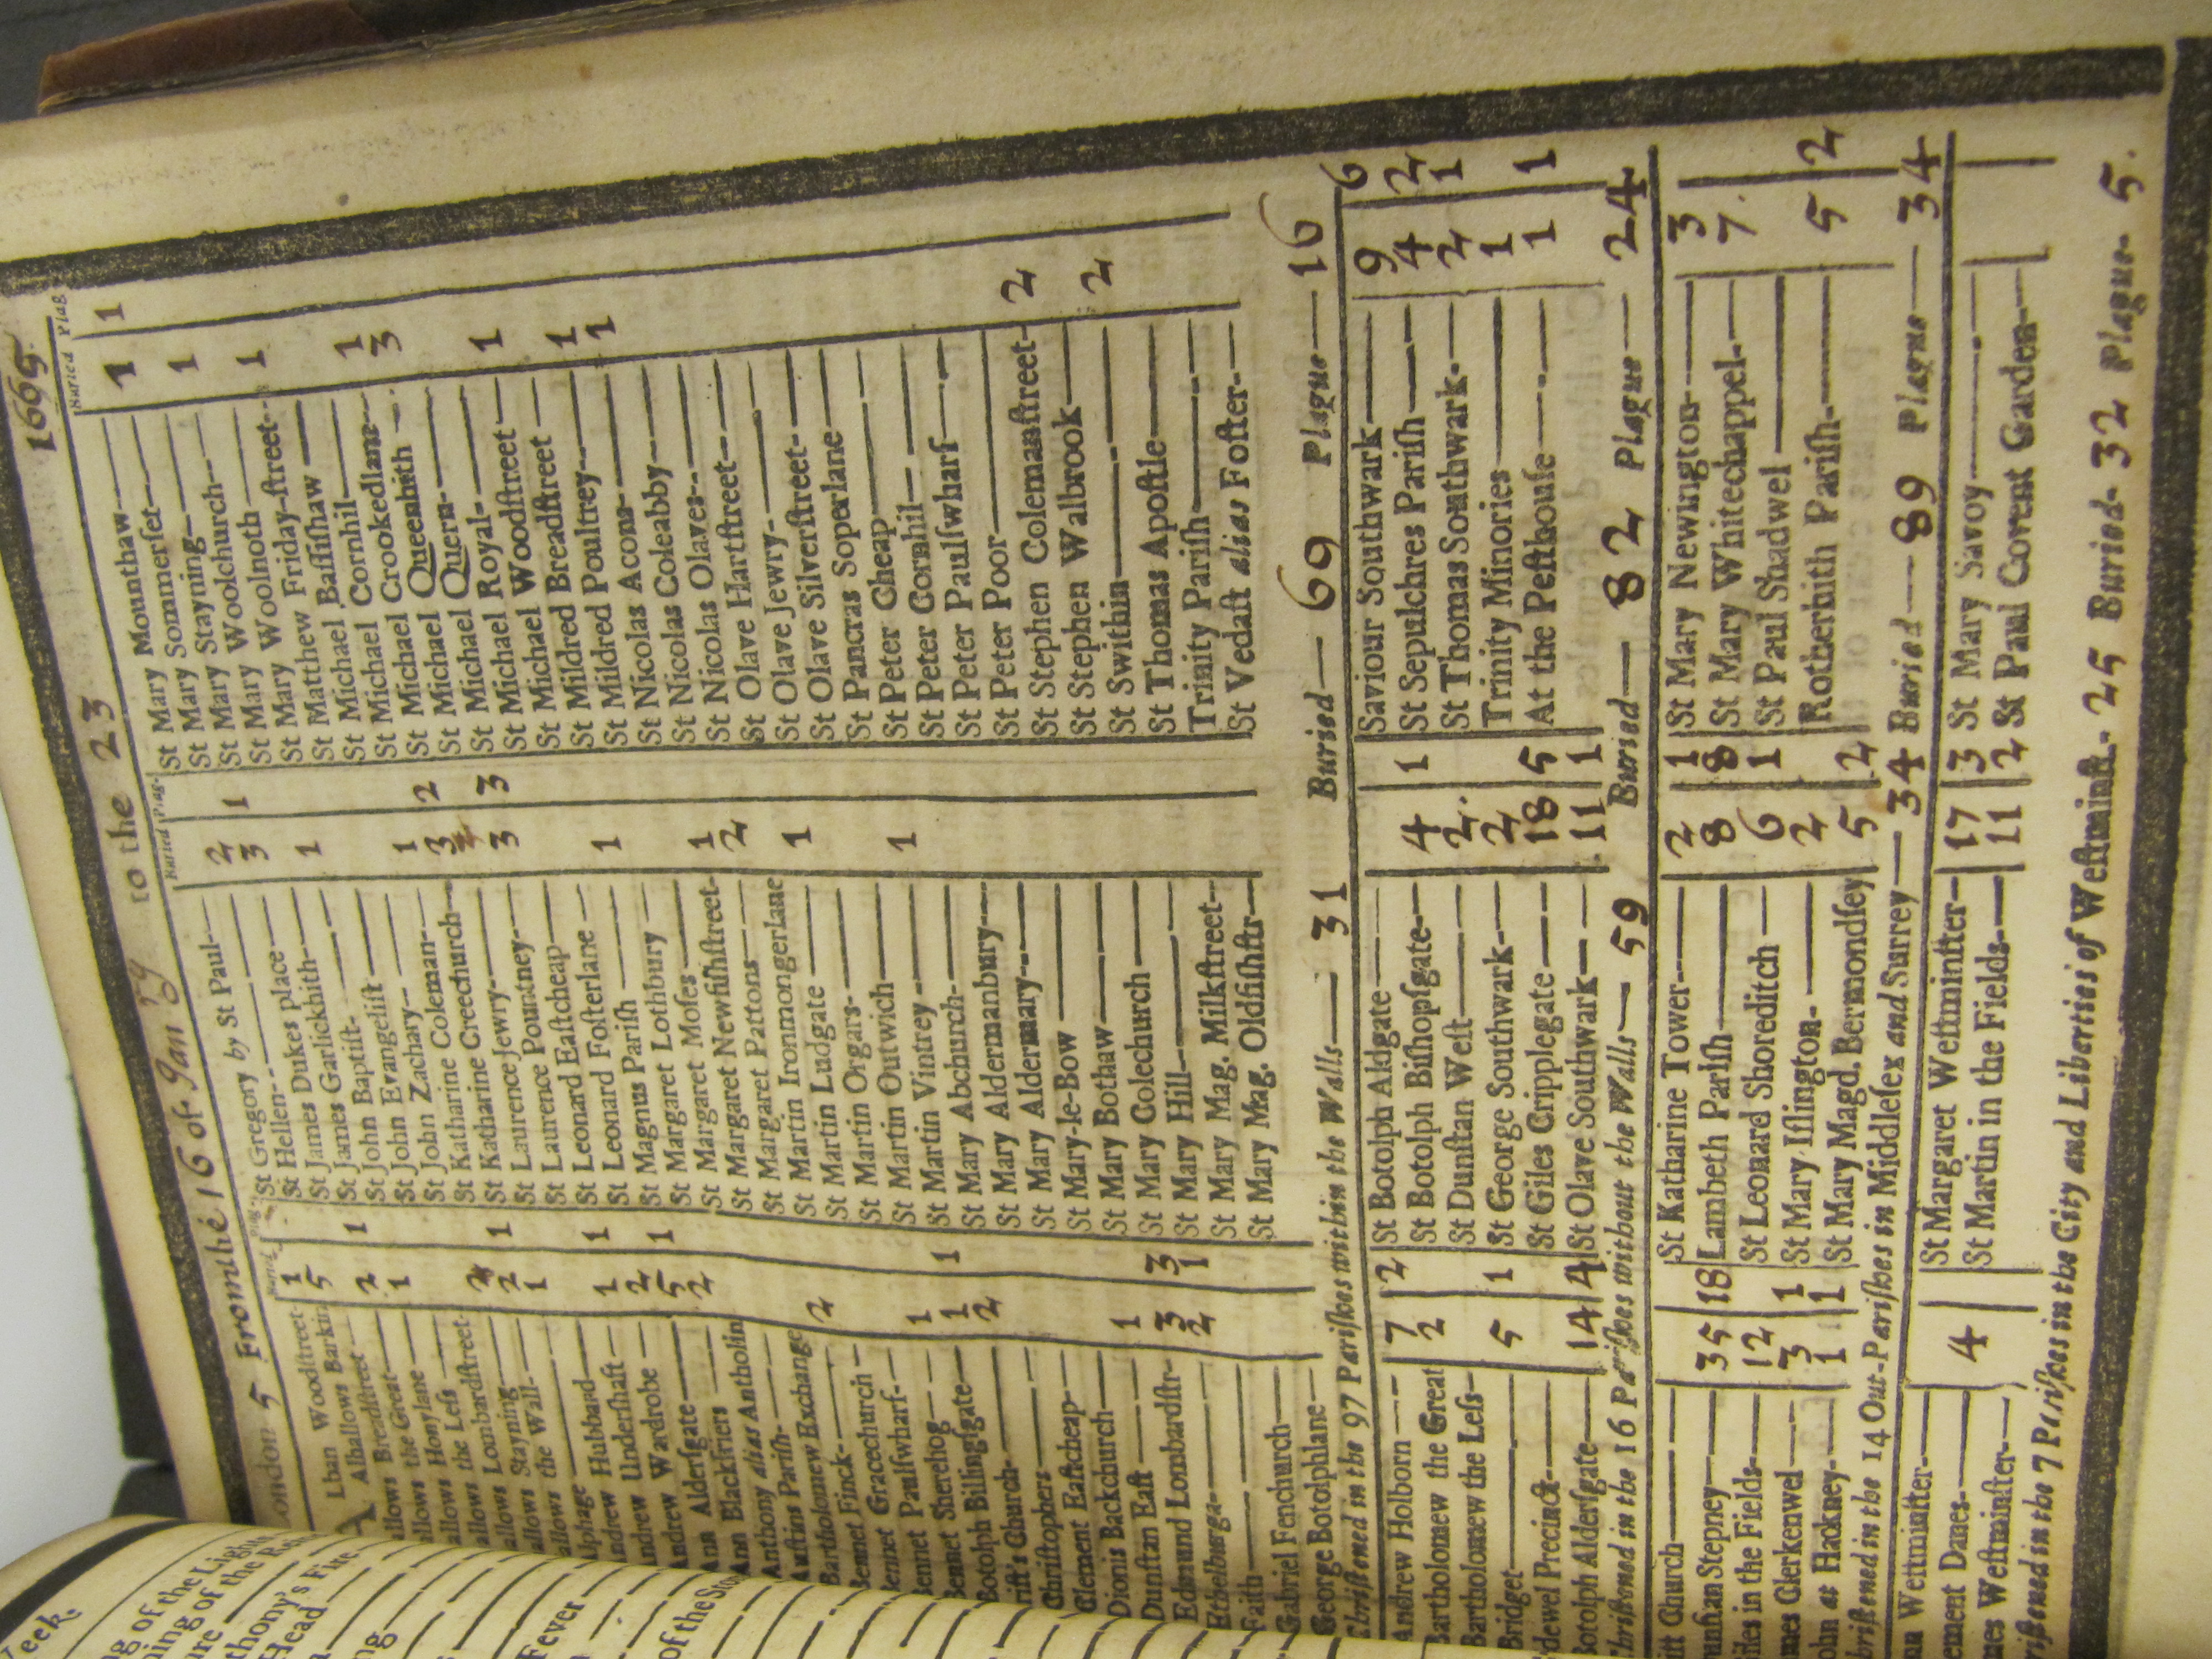 1665
London 5 From the 16 of Jan<sup>y</sup> to the 23
Buried Plag.
Lban Woodstreet
Alhallows Barkin
allows Breadstreet
allows the Great
allows Honylane
allows the Less
allows Lombardstreet
allows Stayning
allows the Wall
Alphage
Andrew Hubbard
Andrew Undershaft
Andrew Wardrobe
Ann Aldersgate
Ann Blackfriers
Anthony alias Antholin
Austins Parish
Bartholomew Exchange
Bennet Finck
Bennet Gracechurch
Bennet Paulswharf
Bennet Sherehog
Botolph Billingsgate
rist's Church
Christophers
Clement Eastcheap
Dionis Backchurch
Dunstan East
Edmund Lombardstr
Ethelburga
Faith
Gabriel Fenchurch
George Botolphlane
1
5
2
1
2
2
1
1
2
5
2
2
1
1
2
1
3
2
1
1
1
1
1
3
1
Buried Plag.
St Gregory by St Paul
St Hellen
St James Dukes place
St James Garlickhith
St John Baptist
St John Evangelist
St John Zachary
St Katharine Coleman
St Katharine Creechurch
St Laurence Jewry
St Laurence Pountney
St Leonard Eastcheap
St Leonard Fosterlane
St Magnus Parish
St Margaret Lothbury
St Margaret Moses
St Margaret Newfishstreet
St Margaret Pattons
St Martin Ironmongerlane
St Martin Ludgate
St Martin Orgars
St Martin Outwich
St Martin Vintrey
St Mary Abchurch
St Mary Aldermanbury
St Mary Aldermary
St Mary-le-Bow
St Mary Bothaw
St Mary Colechurch
St Mary Hill
St Mary Mag. Milkstreet
St Mary Mag. Oldfishstr
2
3
1
1
3
3
1
1
2
1
1
1
2
3
Buried Plag
St Mary Mounthaw
St Mary Sommerset
St Mary Stayning
St Mary Woolchurch
St Mary Woolnoth
St Mary Friday-street
St Matthew Bassishaw
St Michael Cornhil
St Michael Crookedlam
St Michael Queenhith
St Michael Quern
St Michael Royal
St Michael Woodstreet
St Mildred Breadstreet
St Mildred Poultrey
St Nicolas Acons
St Nicolas Coleabby
St Nicolas Olaves
St Olave Hartstreet
St Olave Jewry
St Olave Silverstreet
St Pancras Soperlane
St Peter Cheap
St Peter Cornhil
St Peter Paulswharf
St Peter Poor
St Stephen Colemanstreet
St Stephen Walbrook
St Swithin
St Thomas Apostle
Trinity Parish
St Vedast alias Foster
1
1
1
1
3
1
1
1
2
2
1
Christened in the 97 Parishes within the Walls 31 Buried 69 Plague 16
Andrew Holborn 7 2
Bartholomew the Great 2
Bartholomew the Less
Bridget 5 1
dewel Precinct
Botolph Aldersgate 14 4
St Botolph Aldgate 4 1
St Botolph Bishopsgate 2
St Dunstan West 2
St George Southwark
St Giles Cripplegate 18 5
St Olave Southwark 11 1
Saviour Southwark 9 6
St Sepulchres Parish 4 2
St Thomas Southwark 2 1
Trinity Minories 1
At the Pesthouse 1 1
Christened in the 16 Parishes without the Walls 59 Buried 82 Plague 24
ist Church
unstan Stepney 35 18
Giles in the Fields 12
ames Clerkenwel 3 1
John at Hackney 1 1
St Katharine Tower 2 1
Lambeth Parish 8 8
St Leonard Shoreditch 6 1
St Mary Islington 2
St Mary Magd. Bermondsey 5 2
St Mary Newington 3
St Mary Whitechappel 7
St Paul Shadwel
Rotherhith Parish 5 2
hristened in the 14 Out-Parishes in Middlesex and Surrey 34 Buried 89 Plague 34
nn Westminster
ement Danes 4
mes Westminster
St Margaret Westminster 17 3
St Martin in the Fields 11 2
St Mary Savoy
St Paul Covent Garden
ristened in the 7 Parishes in the City and Liberties of Westminst. 25 Buried 32 Plague 5.
Week.
ng of the Ligh
ning of the
ure
thony's Fire
Head
ng
Fever
of the Sto